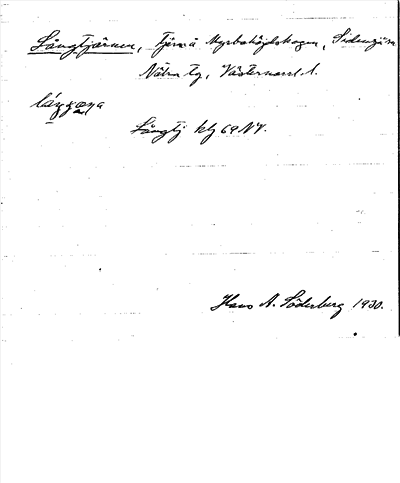 Långtjärnen, tjärn å Myrbohöjdskogen, Sidensjö sn
Nätra tg, Västernorrl. l.
Långtj kbl 69 NV.
Hans A. Söderberg 1930.